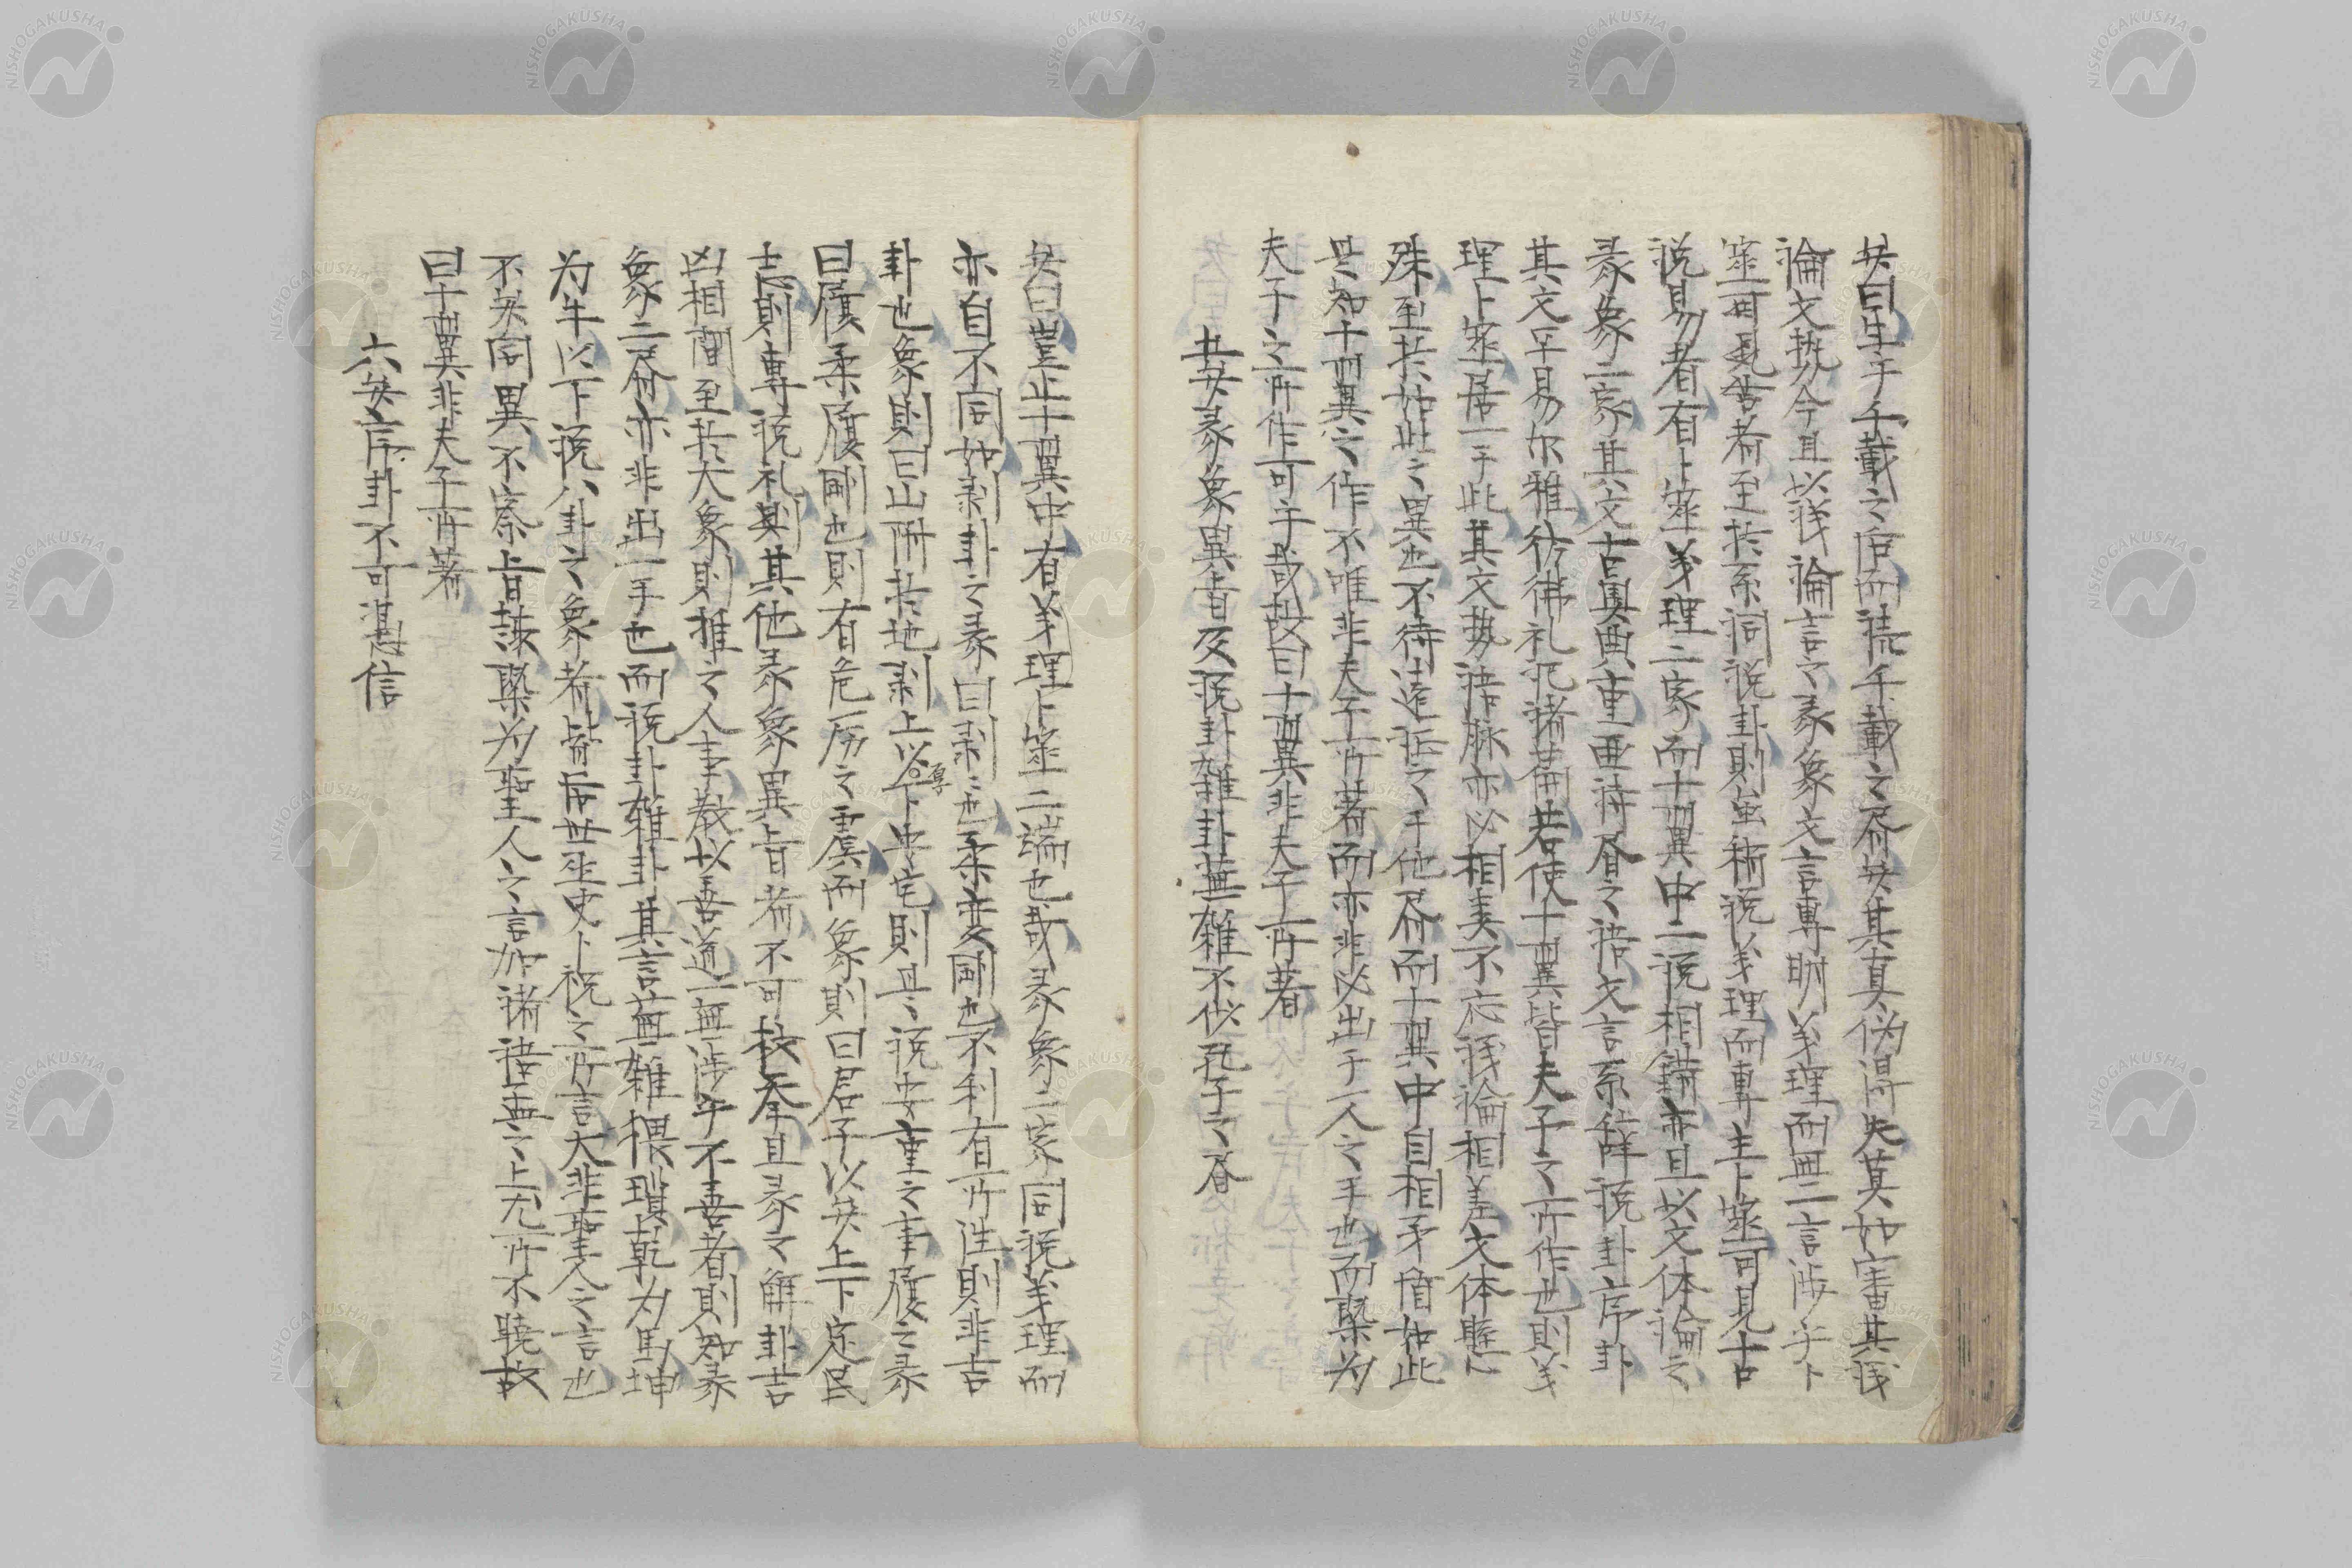 弁曰生乎千載之后而読千載之昏弁其真偽得失莫如審其議
論文埶今且以議論言之彖象文言専明义理而無一言渉乎卜
筮可見古者至扵系詞説卦則虽称説义理而専主卜筮可見古
説易者有卜筮义理二家而十翼中二説相錯亦且以文体論之
彖象二家其文古奥典重酉詩昏之語文言系辞説卦序卦
其文平易尔雅彷彿礼記諸篇若使十翼皆夫子之所作也則义
理卜筮居一于此其文埶語脉亦必相表不応議論相差文体懸
殊至扵如此之異也不待遠証之于他昏而十翼中自相矛盾如此
是知十翼之作不唯非夫子所著而亦非必出于一人之手也而槩为
夫子之所作可乎哉故曰十翼非夫子所著
五弁彖象異旨及説卦雑卦蕪雑不似孔子之昏
弁曰豈止十翼中有义理卜筮二端也哉彖象二家同説义理而
亦自不同如剥卦之彖曰剥々也柔変剛也不利有所往則非吉
卦也象則曰山附扵地剥上以厚下安宅則且々説安重之事履之彖
曰履柔履剛也則有危厉之虞而象則曰君子以弁上下定民
志則専説礼則其他彖象異旨者不可枚挙且彖之解卦吉
凶相関至扵大象則推之人事教以善道一無渉乎不善者則知彖
象二昏亦非出一手也而説卦雑卦其言蕪雑猥瑣乾为馬坤
为牛以下説八卦之象者皆后世巫史卜祝之所言大非聖人之言也
不弁同異不察旨誤槩为聖人之言加諸語孟之上尤所不暁故
曰十翼非夫子所著
六弁序卦不可湛信